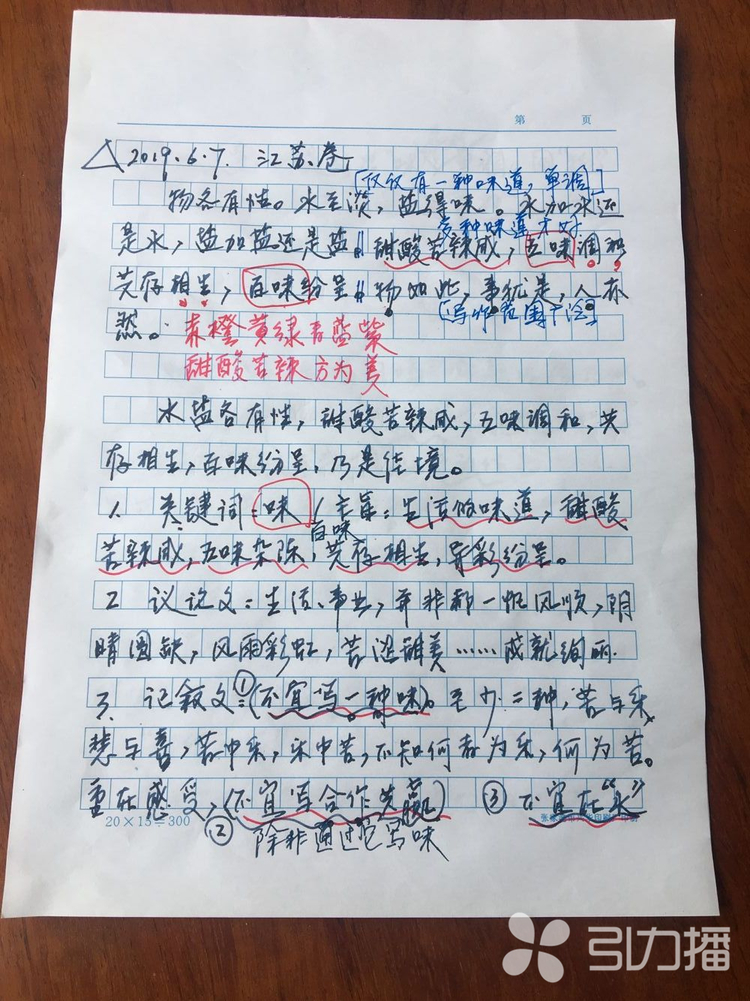 第 页
△2019.6.7. 江苏卷
[仅仅有一种味道,单调]
物各有性。水至淡,盐得味。水加水还
多种味道才好
是水,盐加盐还是盐。酸甜苦辣咸,五味调和,
共存相生,百味纷呈。物如此,事犹是,人亦
[写作范围广泛]
然。赤橙黄绿青蓝紫
甜酸苦辣方为美
水盐各有性,甜酸苦辣咸,五味调和,共
存相生,百味纷呈,乃是佳境。
1、关键词:味/主旨:生活的味道,甜酸
百味
苦辣咸,五味杂陈,共存相生,异彩纷呈。
2 议论文:生活、事业,并非都一帆风顺,阴
晴圆缺,风雨彩虹,苦涩甜美……成就绚丽.
3、记叙文:①(不宜写一种味)。至少二种,苦与乐,
愁与喜,苦中乐,乐中苦,不知何者为乐,何为苦。
重在感受,(不宜写合作共赢) ③不宜在“水”
20×15=300
②除非通过它写味
引力播